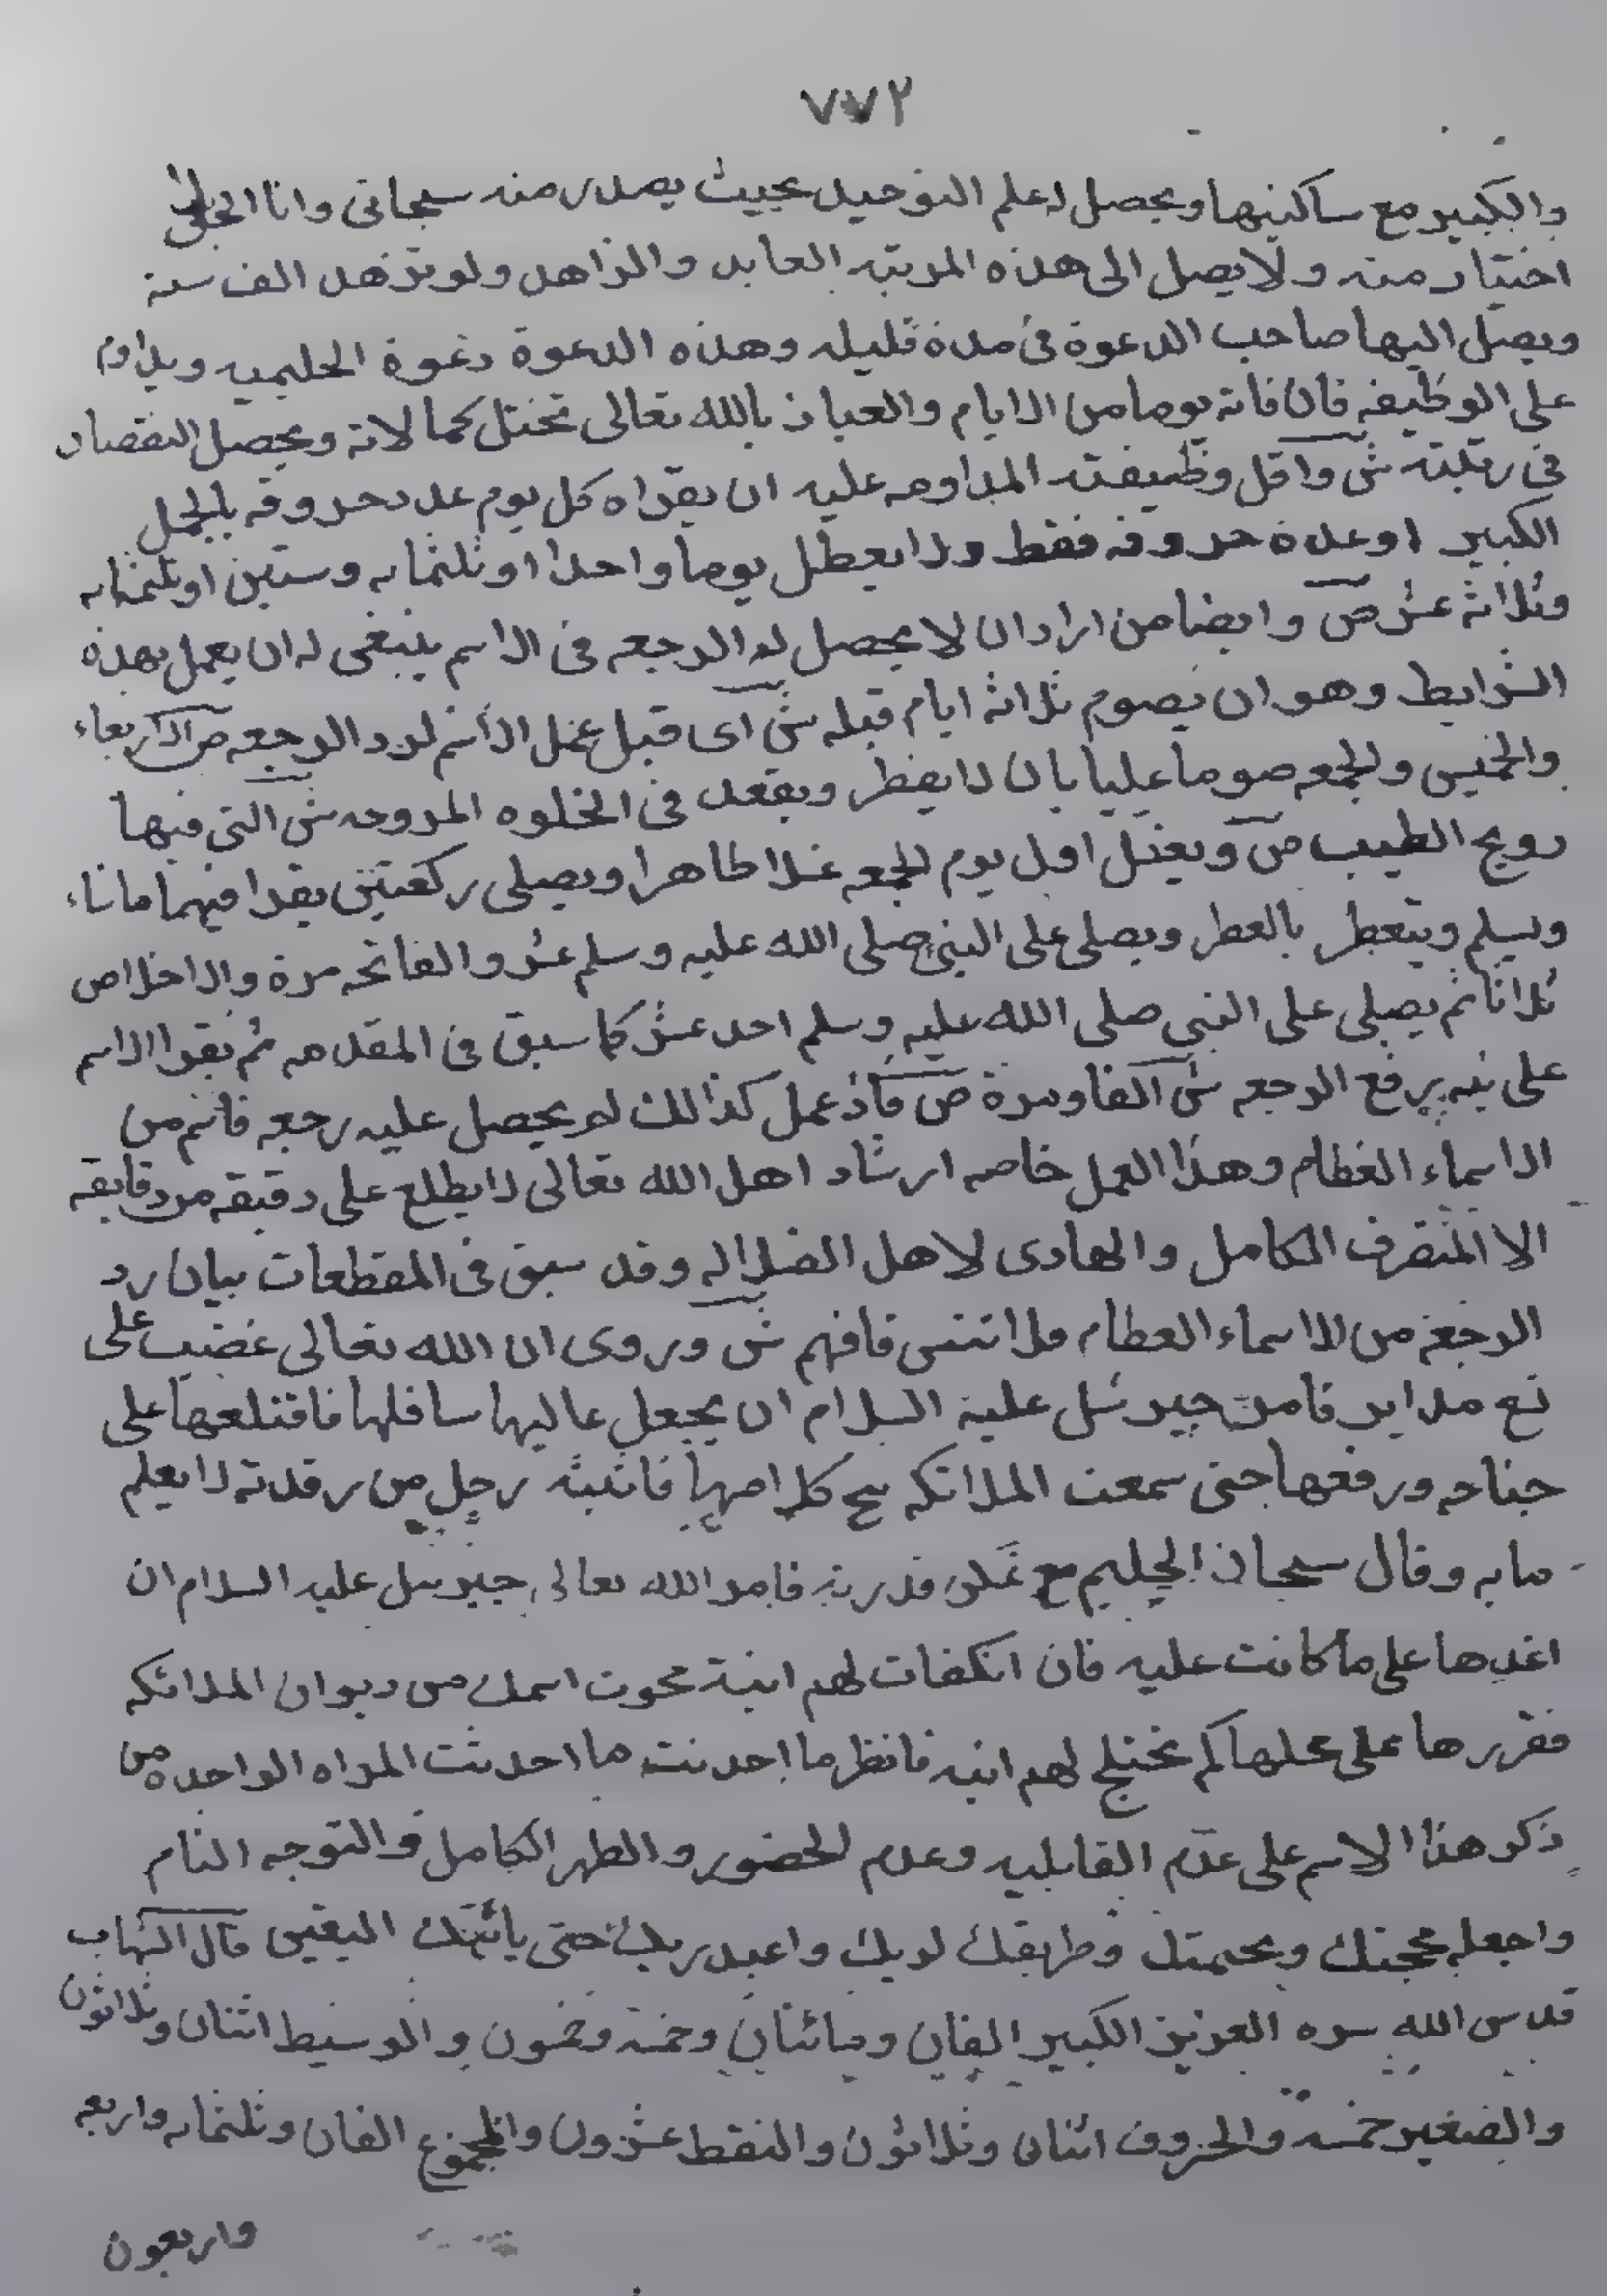 ٧٧٢
والكبير مع ساكنيها ويحصل له علم التوحيد بحيث يصدر منه سبحاني وانا الحق بلا
اختيار منه ولا يصل الى هذه المرتبه العابد والزاهد ولو تزهد الف سنة
ويصل اليها صاحب الدعوة في مدة قليله وهذه الدعوة دعوة الحليميه ويداوم
على الوظيفه فان فاته يوما من الايام والعياذ بالله تعالى تختل كمالاته ويحصل النقصان
في رتبته ش واقل وظيفته المداومه عليه ان يقراه كل يوم عدد حروفه بالجمل
الكبير او عدة حروفه فقط ولا يعطل يوما واحدا او ثلثمايه وستين او ثلثمايه
وثلاثة عشر ص وايضا من اراد ان لا يحصل له الرجعه في الاسم ينبغي له ان يعمل بهذه
الشرايط وهو ان يصوم ثلاثة ايام قبله ش اى قبل عمل الاسم لرد الرجعه ص الاربعاء
والخميس والجمعه صوما عليا بان لا يفطر ويقعد في الخلوه المروحه ش التي فيها
رويح الطيب ص ويغتسل اول يوم الجمعه غسلا طاهرا ويصلى ركعتين يقرا فيهما ما شاء
ويسلم ويتعطر بالعطر ويصلى على النبي صلى الله عليه وسلم عشر والفاتحه مرة والاخلاص
ثلاثا ثم يصلى على النبي صلى الله عليه وسلم احد عشر كما سبق في المقدمه ثم يقرا الاسم
على نيه رفع الرجعه ش الفا ومرة ص فاذ عمل كذالك لم يحصل عليه رجعه فانه من
الاسماء العظام وهذا العمل خاصه ارشاد اهل الله تعالى لا يطلع على دقيقه من دقايقه
الا المتصرف الكامل والهادى لاهل الضلاله وقد سبق في المقطعات بيان رد
الرجعة من الاسماء العظام فلا تنسى فافهم ش وروى ان الله تعالى غضب على
تسع مداين فامر جبرئيل عليه السلام ان يجعل عاليها سافلها فاقتلعها على
جناحه ورفعها حتى سمعت الملائكه كلامها فانتبه رجل من رقدته لا يعلم
ما به وقال سبحان الحليم مع قدرته فامر الله تعالى جبرئيل عليه السلام ان
اعدها على ما كانت عليه فان انكفات لهم انية محوت اسمك من ديوان الملائكه
فقررها على محلها لم تختلج لهم انيه فانظر ما احدثت ما احدثت المراه الواحده من
ذكر هذا الاسم على عدم القابليه وعدم الحضور والطهر الكامل والتوجه التام
واجعله محجتك وطريقك لربك واعبد ربك حتى يأتيك اليقين قال الشهاب
قدس الله سره العزيز الكبير الفان ومائتان وخمسة وخمسون والوسيط اثنان وثلاثون
والصغير خمسة والحروف اثنان وثلاثون والنقط عشرون والمجموع الفان وثلثمايه واربعه
واربعون